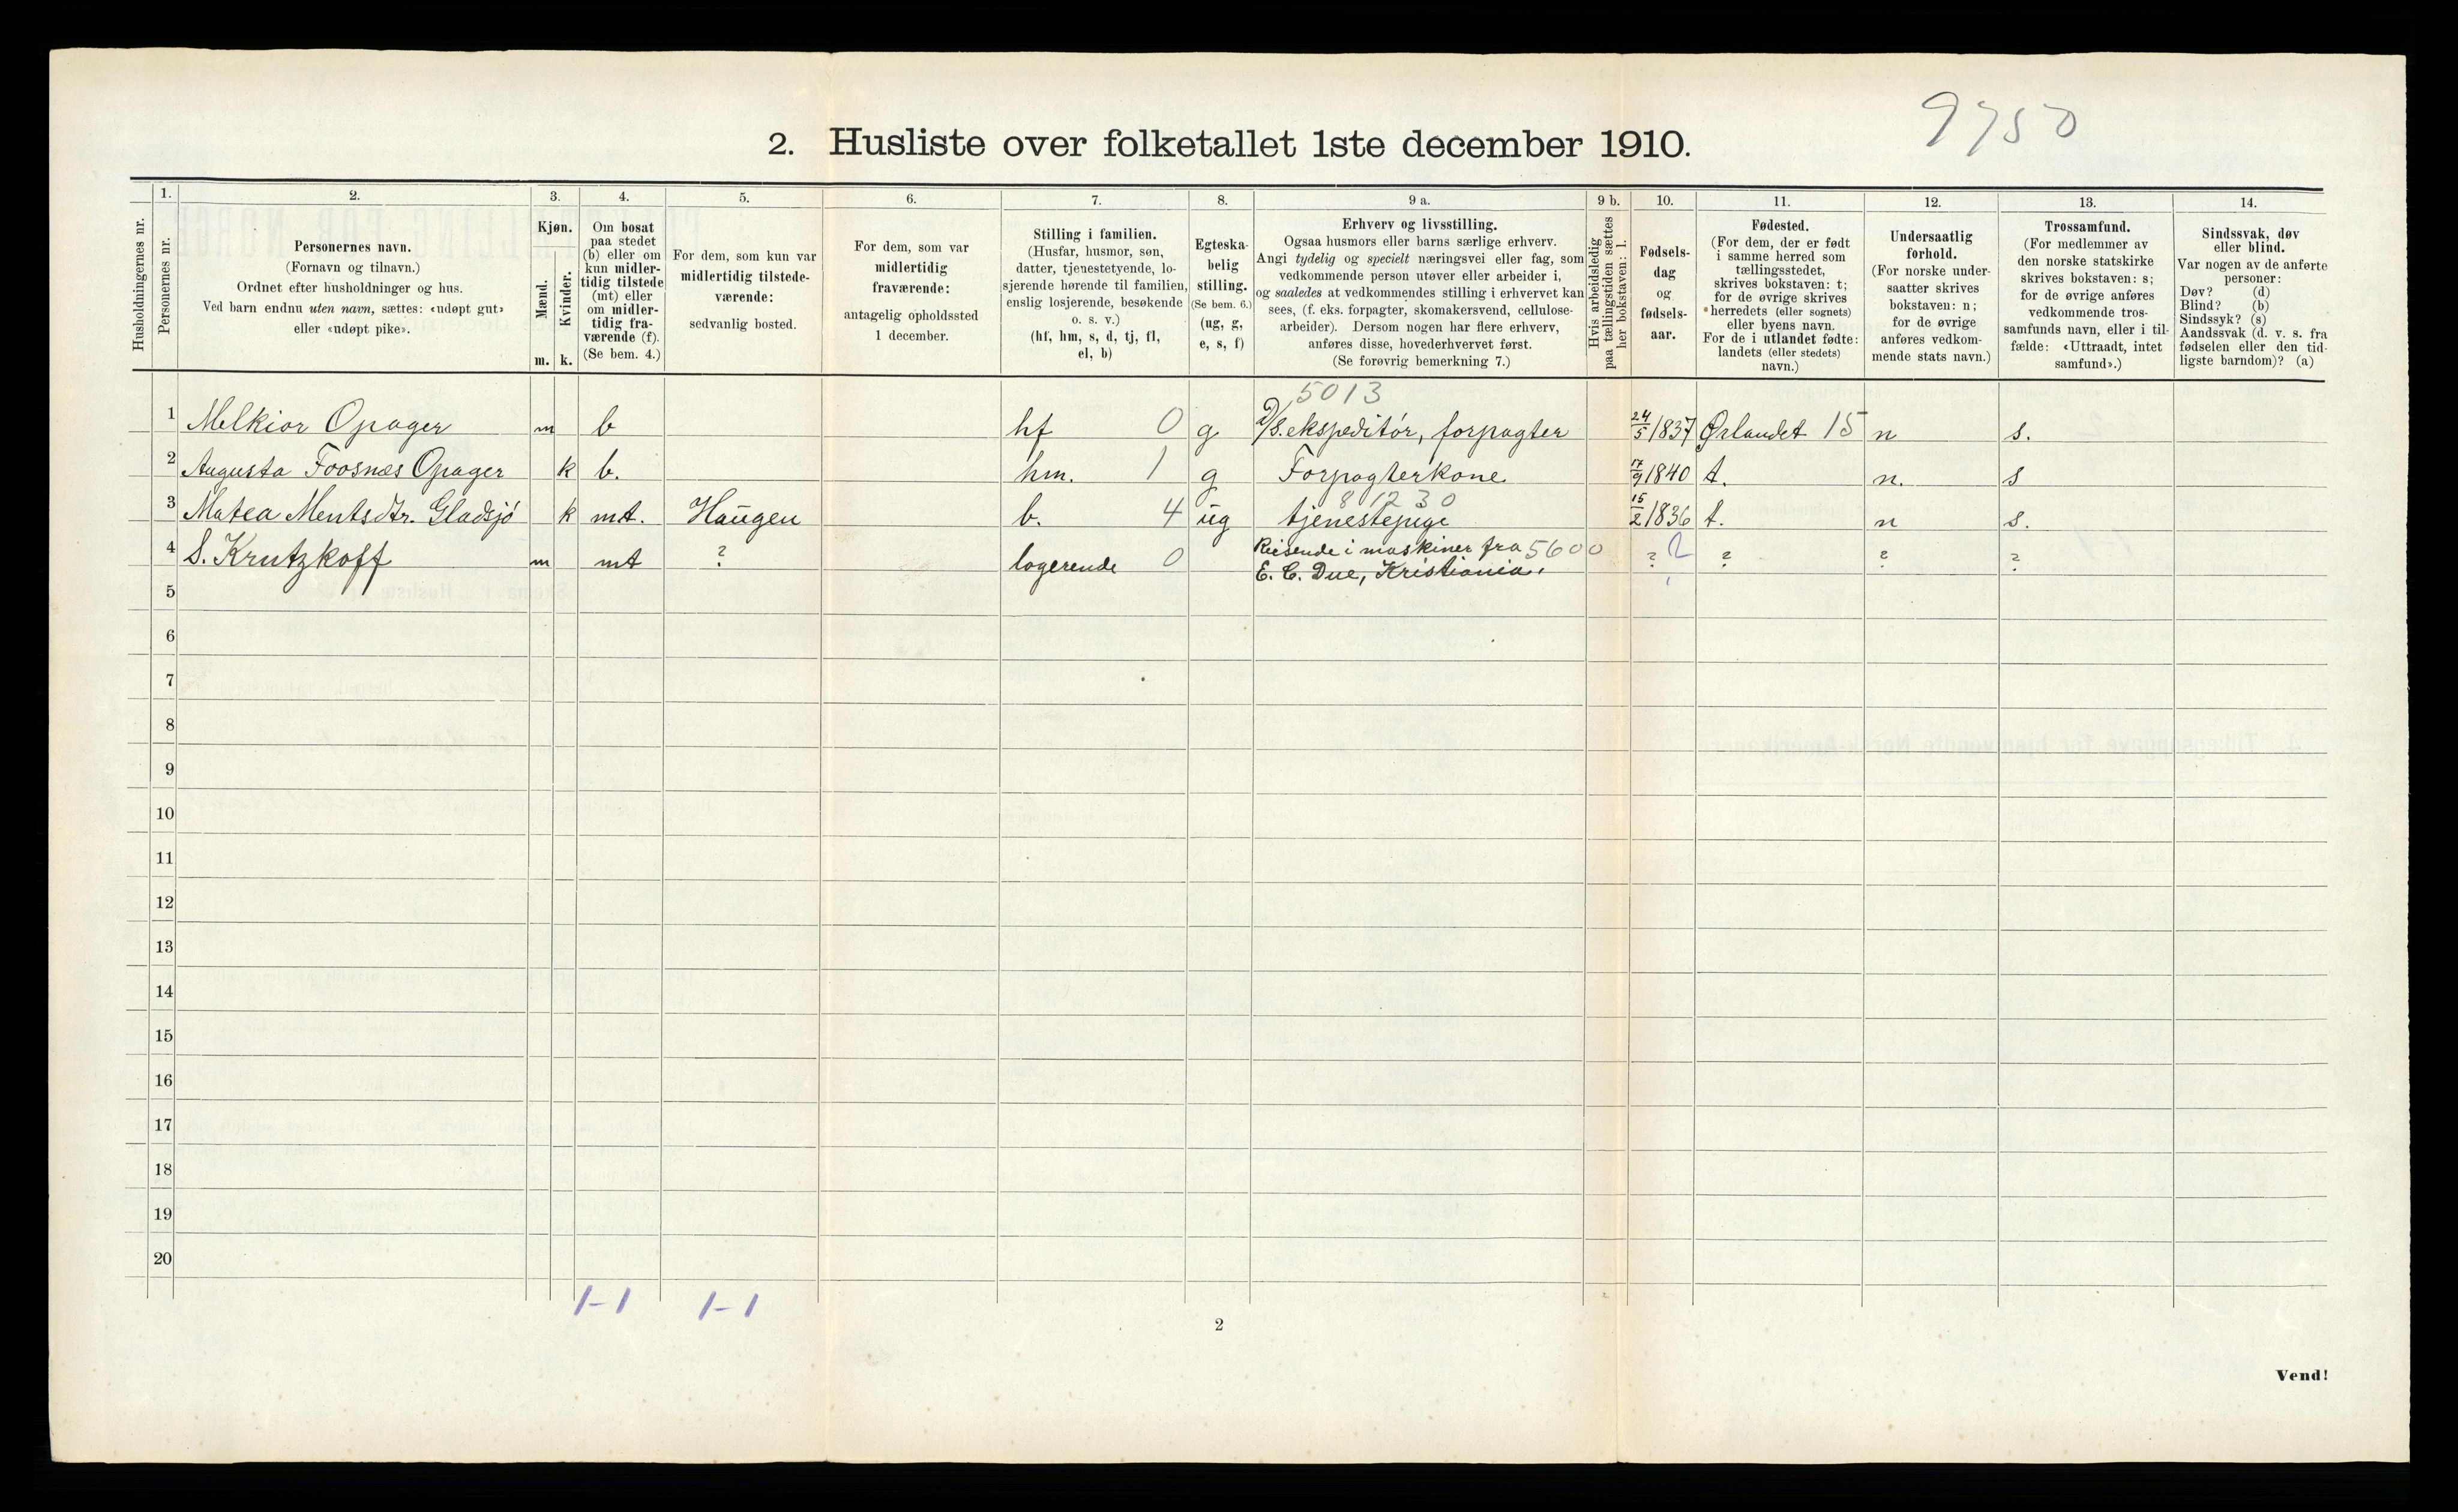 9750
2. Husliste over folketallet 1ste december 1910.
Husholdningernes nr.
1.
Personernes nr.
2.
Personernes navn.
(Fornavn og tilnavn.)
Ordnet efter husholdninger og hus.
Ved barn endnu uten navn, sættes: «udøpt gut»
eller «udøpt pike».
3.
Kjøn.
Mænd.
Kvinder.
m. k.
4.
Om bosat
paa stedet
(b) eller om
kun midler-
tidig tilstede
(mt) eller
om midler-
tidig fra-
værende (f).
(Se bem. 4.)
5.
For dem, som kun var
midlertidig tilstede-
værende:
sedvanlig bosted.
6.
For dem, som var
midlertidig
fraværende:
antagelig opholdssted
1 december.
7.
Stilling i familien.
(Husfar, husmor, søn,
datter, tjenestetyende, lo-
sjerende hørende til familien,
enslig losjerende, besøkende
o. s. v.)
(hf, hm, s, d, tj, fl,
el, b)
8.
Egteska-
belig
stilling.
(Se bem. 6.)
(ug, g,
e, s, f)
9 a.
Erhverv og livsstilling.
Ogsaa husmors eller barns særlige erhverv.
Angi tydelig og specielt næringsvei eller fag, som
vedkommende person utøver eller arbeider i,
og saaledes at vedkommendes stilling i erhvervet kan
sees, (f. eks. forpagter, skomakersvend, cellulose-
arbeider). Dersom nogen har flere erhverv,
anføres disse, hovederhvervet først.
(Se forøvrig bemerkning 7.)
9 b.
Hvis arbeidsledig
paa tællingstiden sættes
her bokstaven: l.
10.
Fødsels-
dag
og
fødsels-
aar.
11.
Fødested.
(For dem, der er født
i samme herred som
tællingsstedet,
skrives bokstaven: t;
for de øvrige skrives
herredets (eller sognets)
eller byens navn.
For de i utlandet fødte:
landets (eller stedets)
navn.)
12.
Undersaatlig
forhold.
(For norske under-
saatter skrives
bokstaven: n;
for de øvrige
anføres vedkom-
mende stats navn.)
13.
Trossamfund.
(For medlemmer av
den norske statskirke
skrives bokstaven: s;
for de øvrige anføres
vedkommende tros-
samfunds navn, eller i til-
fælde: «Uttraadt, intet
samfund».)
14.
Sindssvak, døv
eller blind.
Var nogen av de anførte
personer:
Døv? (d)
Blind? (b)
Sindssyk? (s)
Aandssvak (d. v. s. fra
fødselen eller den tid-
ligste barndom)? (a)
5013
1 Melkior Opager m b hf 0 g D/S.ekspeditør, forpagter 24/5 1837 Ørlandet 15 n s.
2 Augusta Foosnæs Opager k b. hm. 1 g Forpagterkone 17/9 1840 t. n. s
81230
3 Matea Mentsdtr. Gladsjö k mt. Haugen b. 4 ug tjenestepige 15/2 1836 t. n s.
4 S. Krutzkoff m mt ? logerende 0 Reisende i maskiner fra 5600
E. C. Due, Kristiania. ? 2 ? ? ?
5
6
7
8
9
10
11
12
13
14
15
16
17
18
19
20
1-1 1-1
2
Vend!